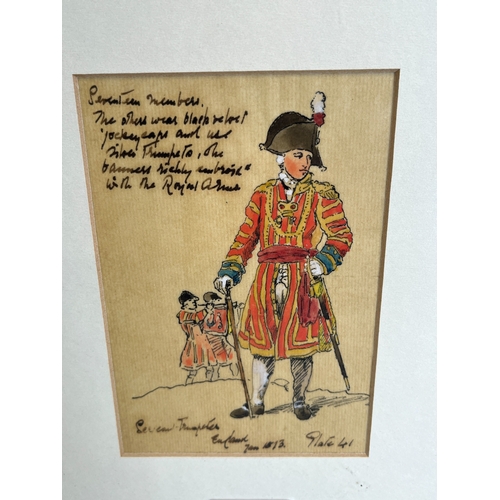 Seventeen members.
The others wear black velvet
jockeycaps and use
silver Trumpets, the
banners richly embroid"
with the Royal Arms
Trumpeter
England
Plate 41